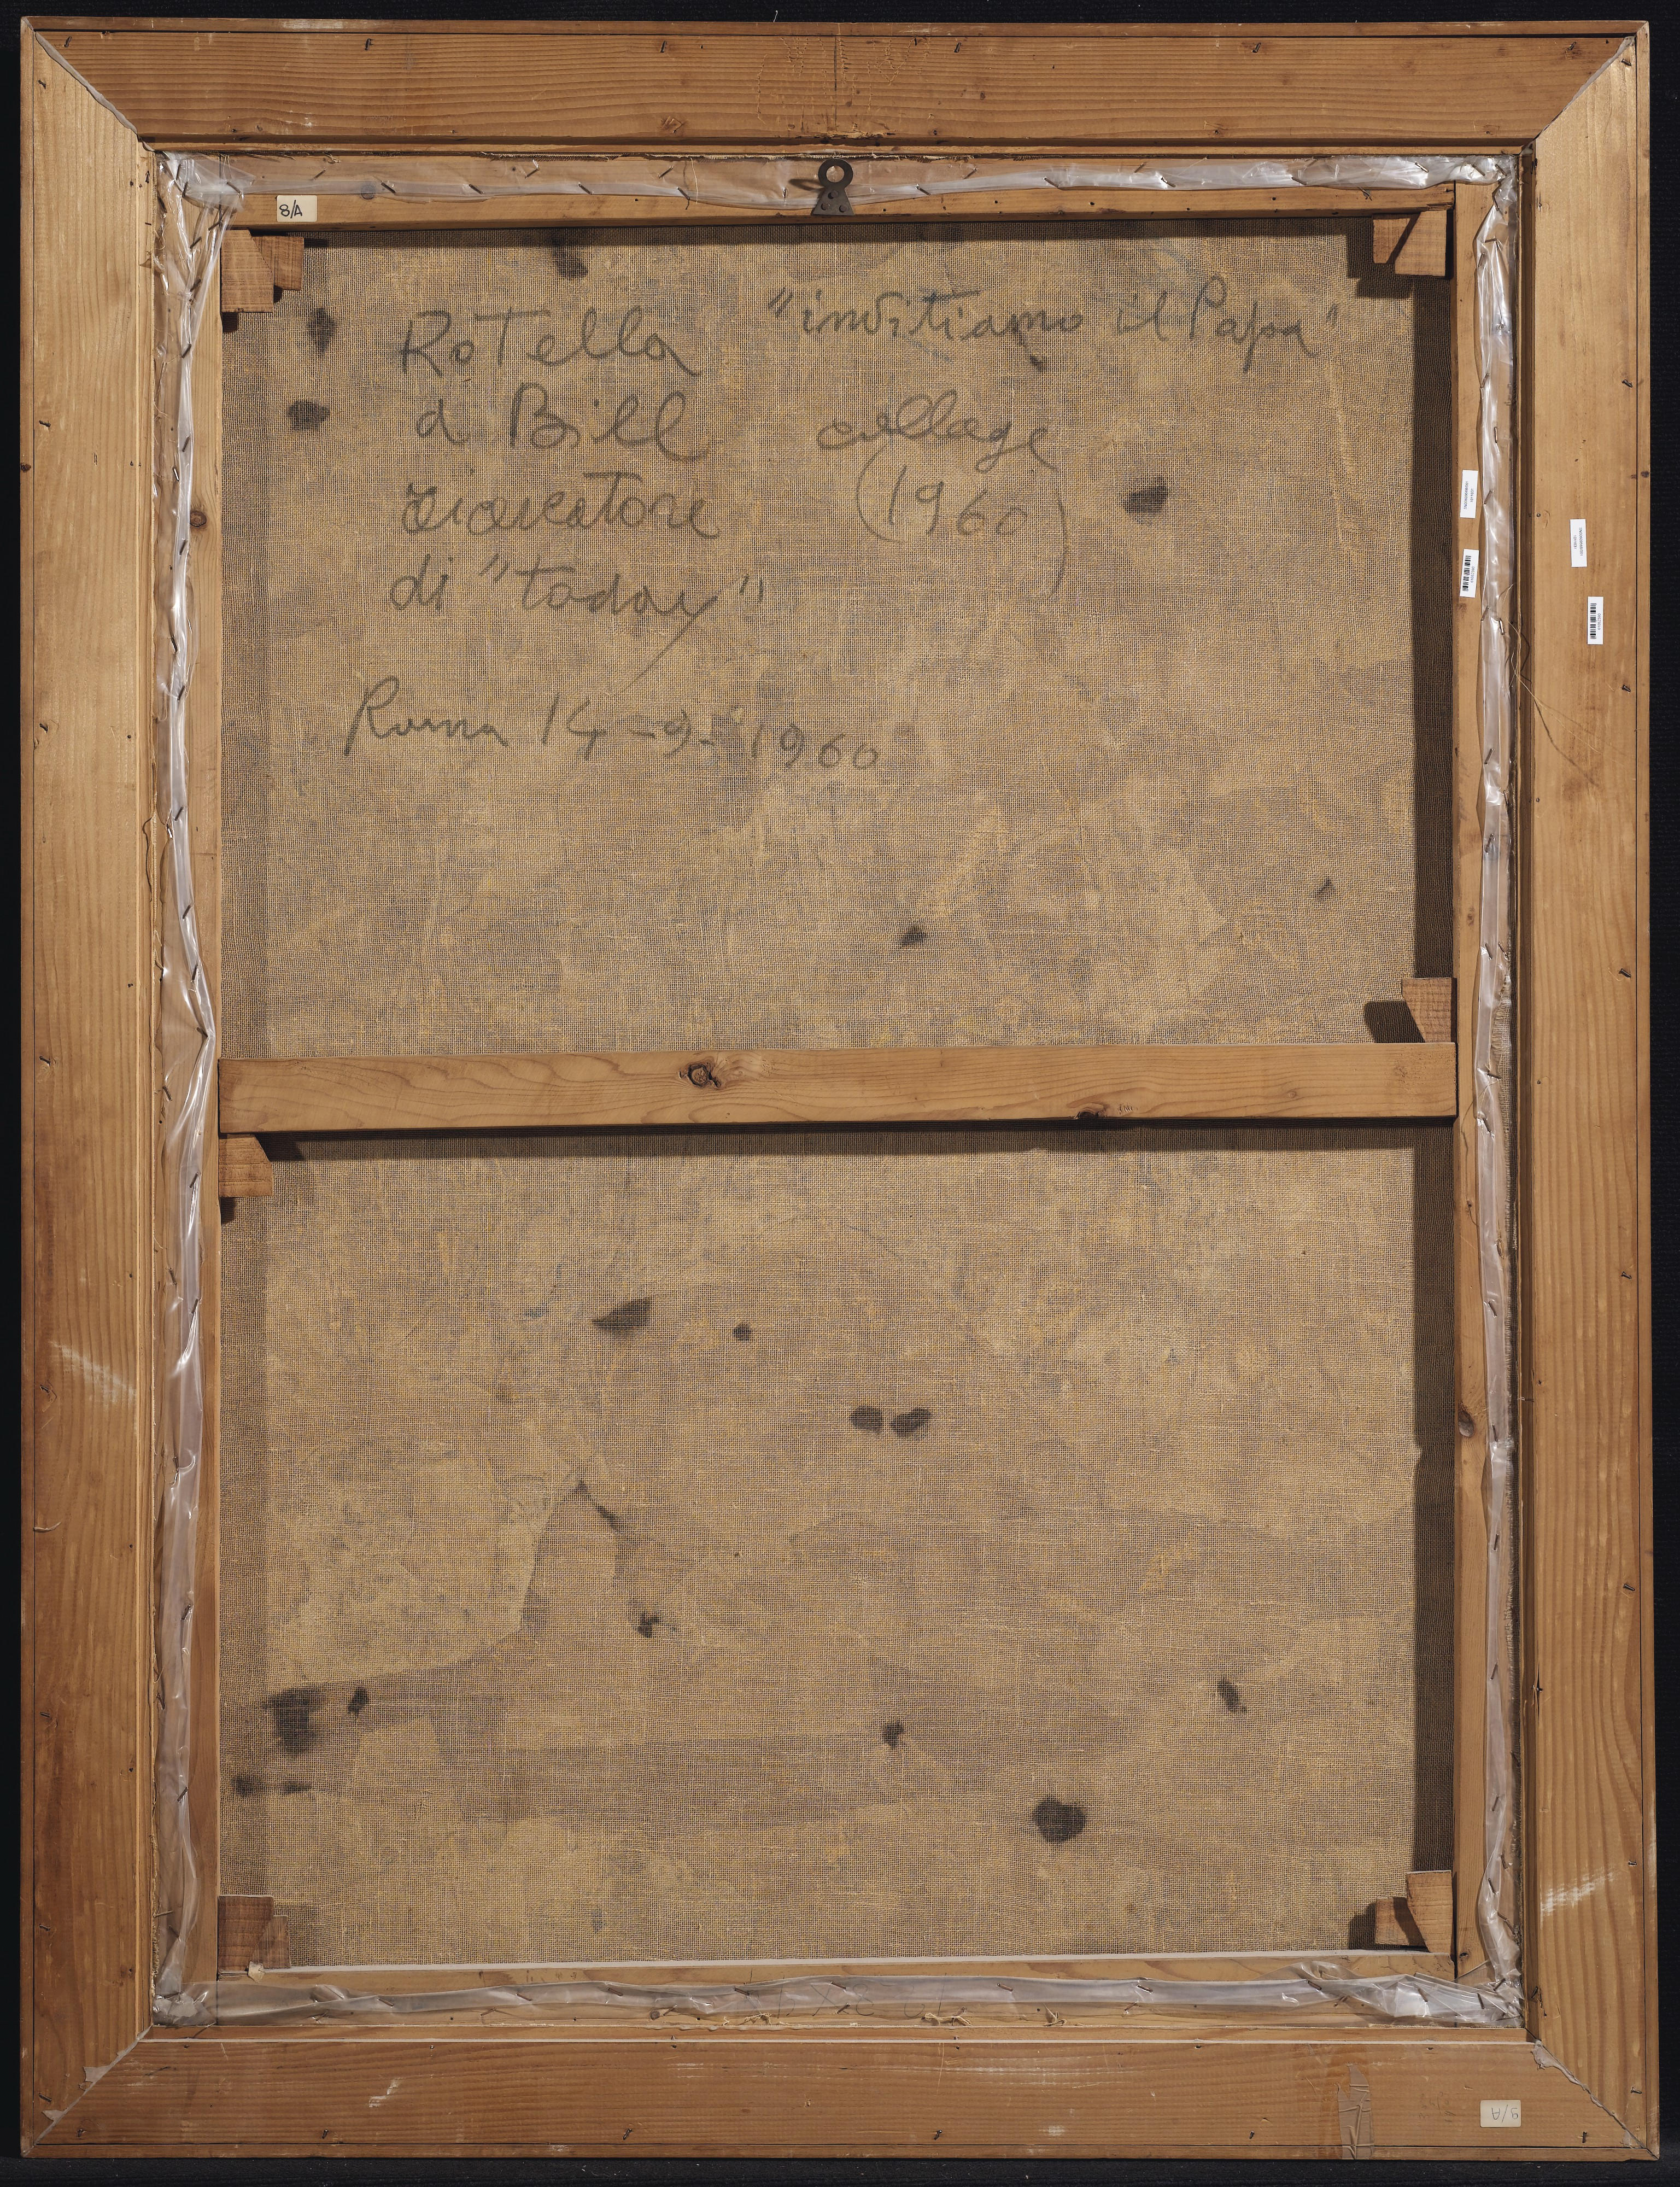 8/A
Rotella "invitiamo il Papa"
a Bill collage
giocatore (1960)
di "today"
Roma 14-9-1960
9/A